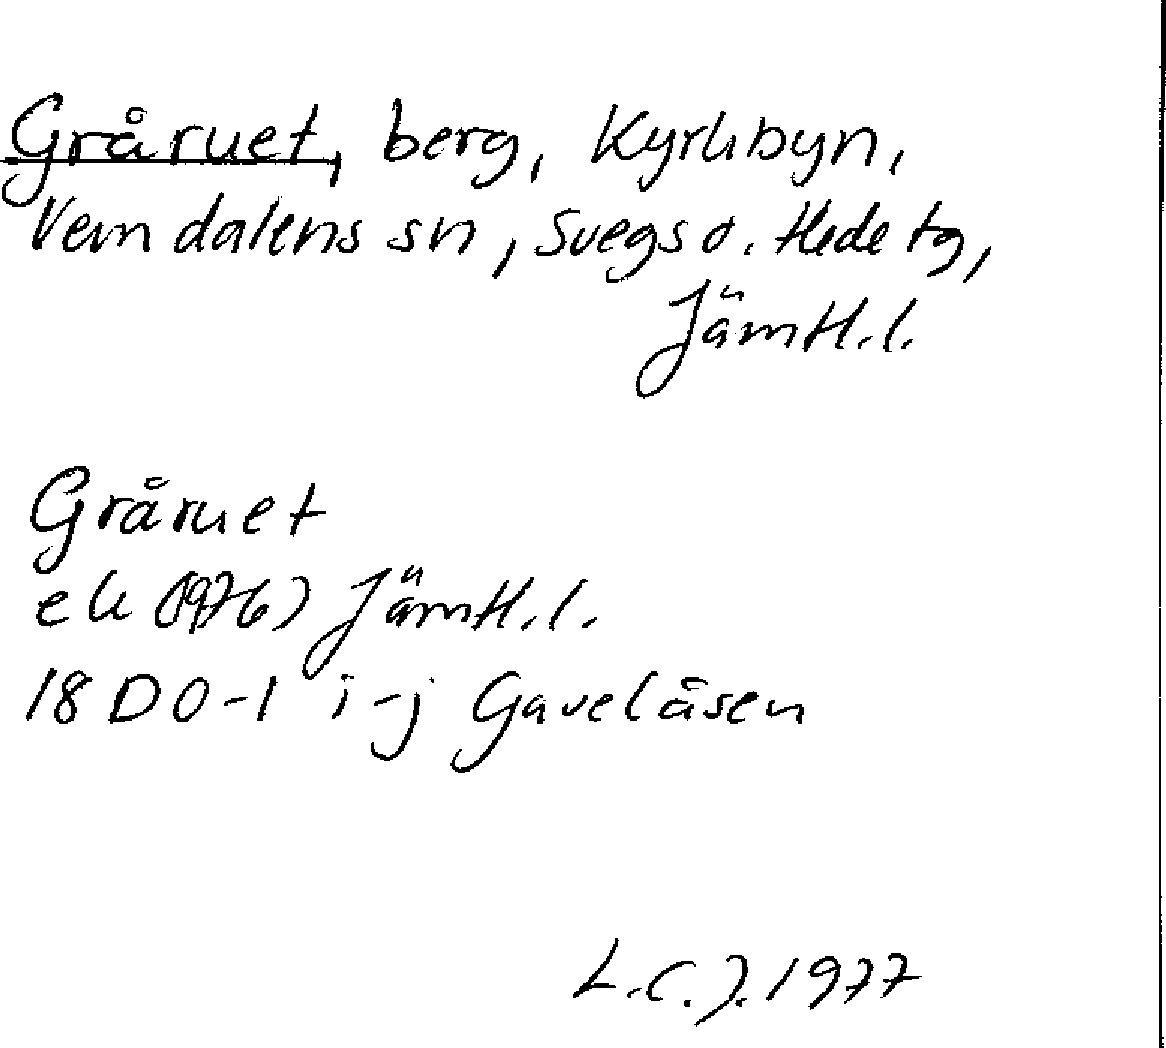 Gråruet, berg, Kyrkbyn,
Vemdalens sn, Svegs o. Hede tg,
Jämtl. l.
Gråruet
ek (1976) Jämtl. l.
18 D 0-1 i-j Gavelåsen
L.C.J. 1977